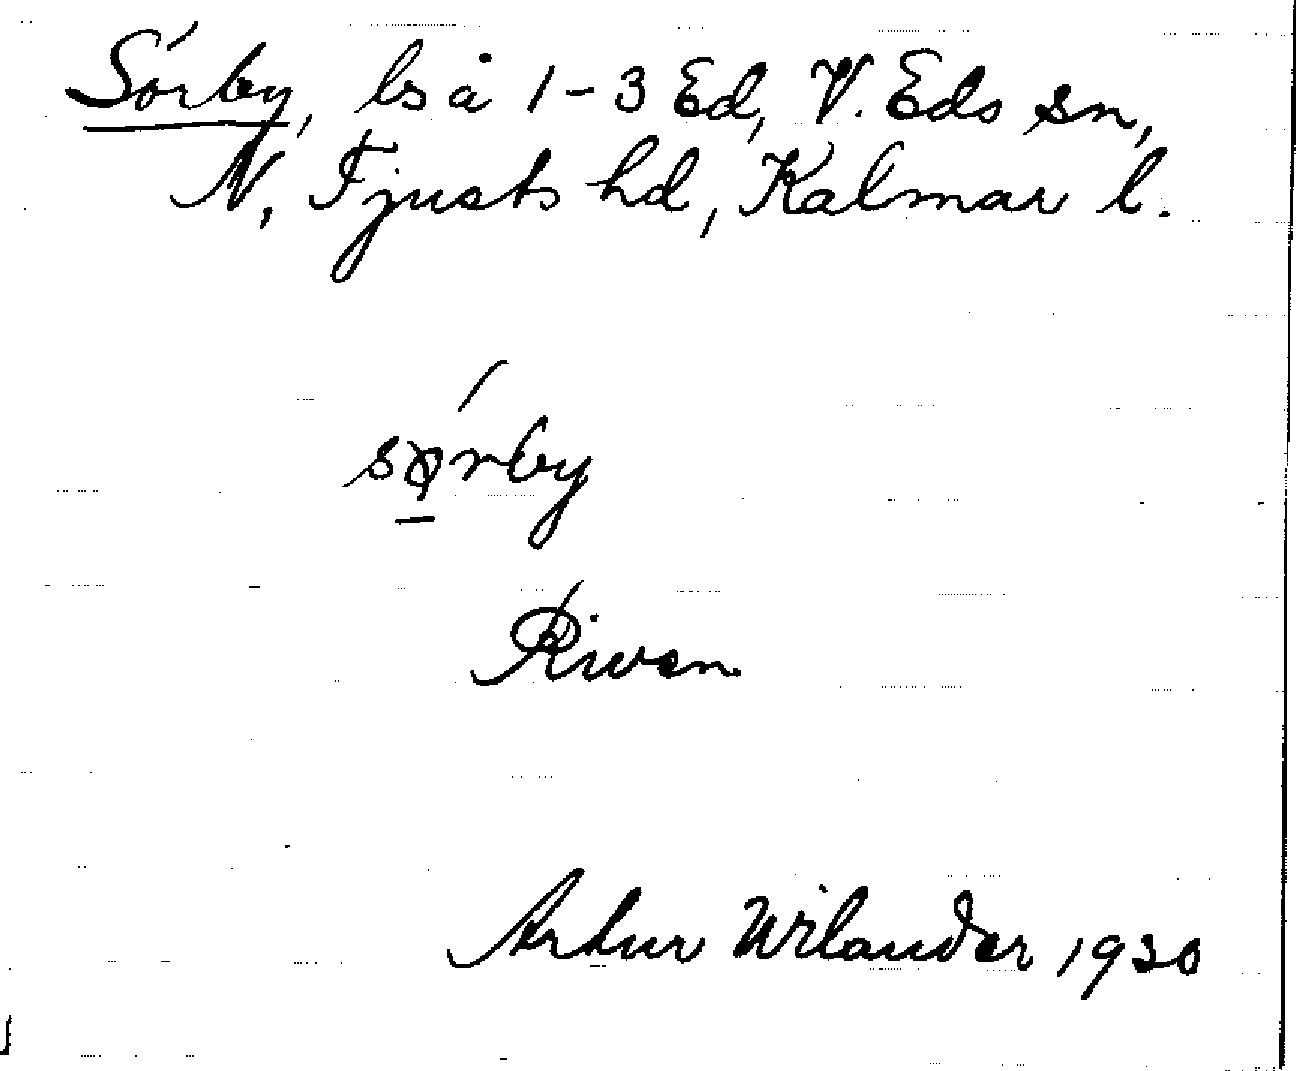 Sörby, ls å 1-3 Ed, V. Eds sn,
N. Tjusts hd, Kalmar l.
sørby
Riwen
Artur Wilander 1930